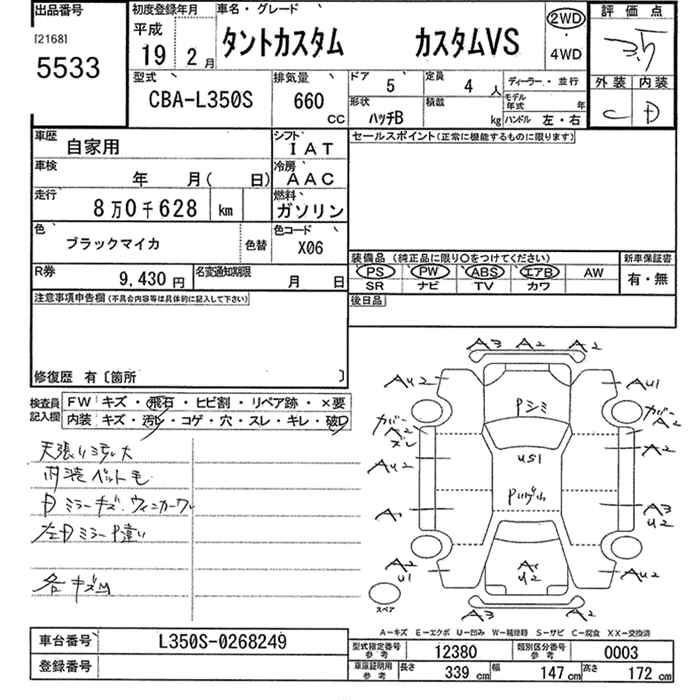 出品番号
[2168]
5533
初度登録年月
平成
19 2月
車名・グレード
タントカスタム カスタムVS
2WD
・
4WD
評価点
3.5
外装 内装
C D
型式
CBA-L350S
排気量
660
CC
ドア 5
定員 4 人
形状 ハッチB
積載 kg
ディーラー・並行
モデル年式 年
ハンドル 左・右
車歴
自家用
シフト
IAT
車検
年 月( 日)
冷房
AAC
走行
8万0千628 km
燃料
ガソリン
色
ブラックマイカ
色替
色コード
X06
R券
9,430円
名変通知期限
月 日
注意事項申告欄(不具合内容等は具体的に記入して下さい)
修復歴 有〔箇所 〕
セールスポイント(正常に機能するものに限ります)
装備品 (純正品に限り○をつけてください)
PS PW ABS エアB AW
SR ナビ TV カワ
新車保証書
有・無
後日品
検査員
記入欄
FW キズ・飛石・ヒビ割・リペア跡・×要
内装 キズ・汚レ・コゲ・穴・スレ・キレ・破レ
内装ペット毛
左Dミラー
各キズ凹
A3 A2 A2
AU2
AU1
Pシミ
A2
US1
A2
AU2
A3
U2
A2
U1
AU2
A3 A2
スペア
A-キズ E-エクボ U-凹み W-補修跡 S-サビ C-腐食 XX-交換済
車台番号
L350S-0268249
登録番号
型式指定番号
参考
12380
類別区分番号
参考
0003
車庫証明用
参考
長さ 339 cm
幅 147 cm
高さ 172 cm